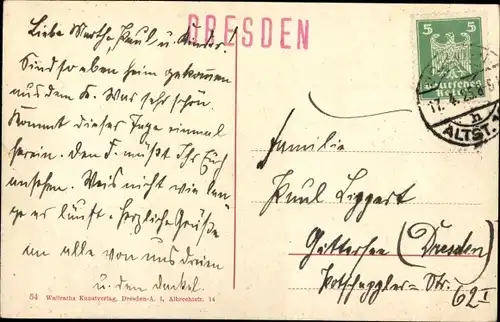 DRESDEN
Liebe Martha, Paul, u. Kinder!
Sind soeben heim gekommen
aus dem K. War sehr schön.
Kommt dieser Tage einmal
herein. Den F. müßt Ihr Euch
ansehen. Weis nicht wie lan-
ge er läuft. Herzliche Grüße
an alle von uns dreien
u. dem Dackel.
5 5
Deutsches
Reich
17. 4. 25. 8
n
ALTST.
Familie
Paul Lippert
Gittersee (Dresden)
Potschappler-Str.
62 I
54 Waltraths Kunstverlag, Dresden-A. 1, Albrechtstr. 14